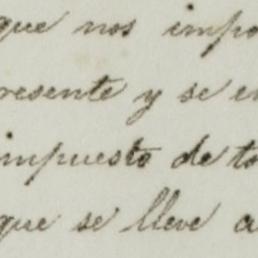 que nos impo
resente y se en
impuesto de to
que se lleve a